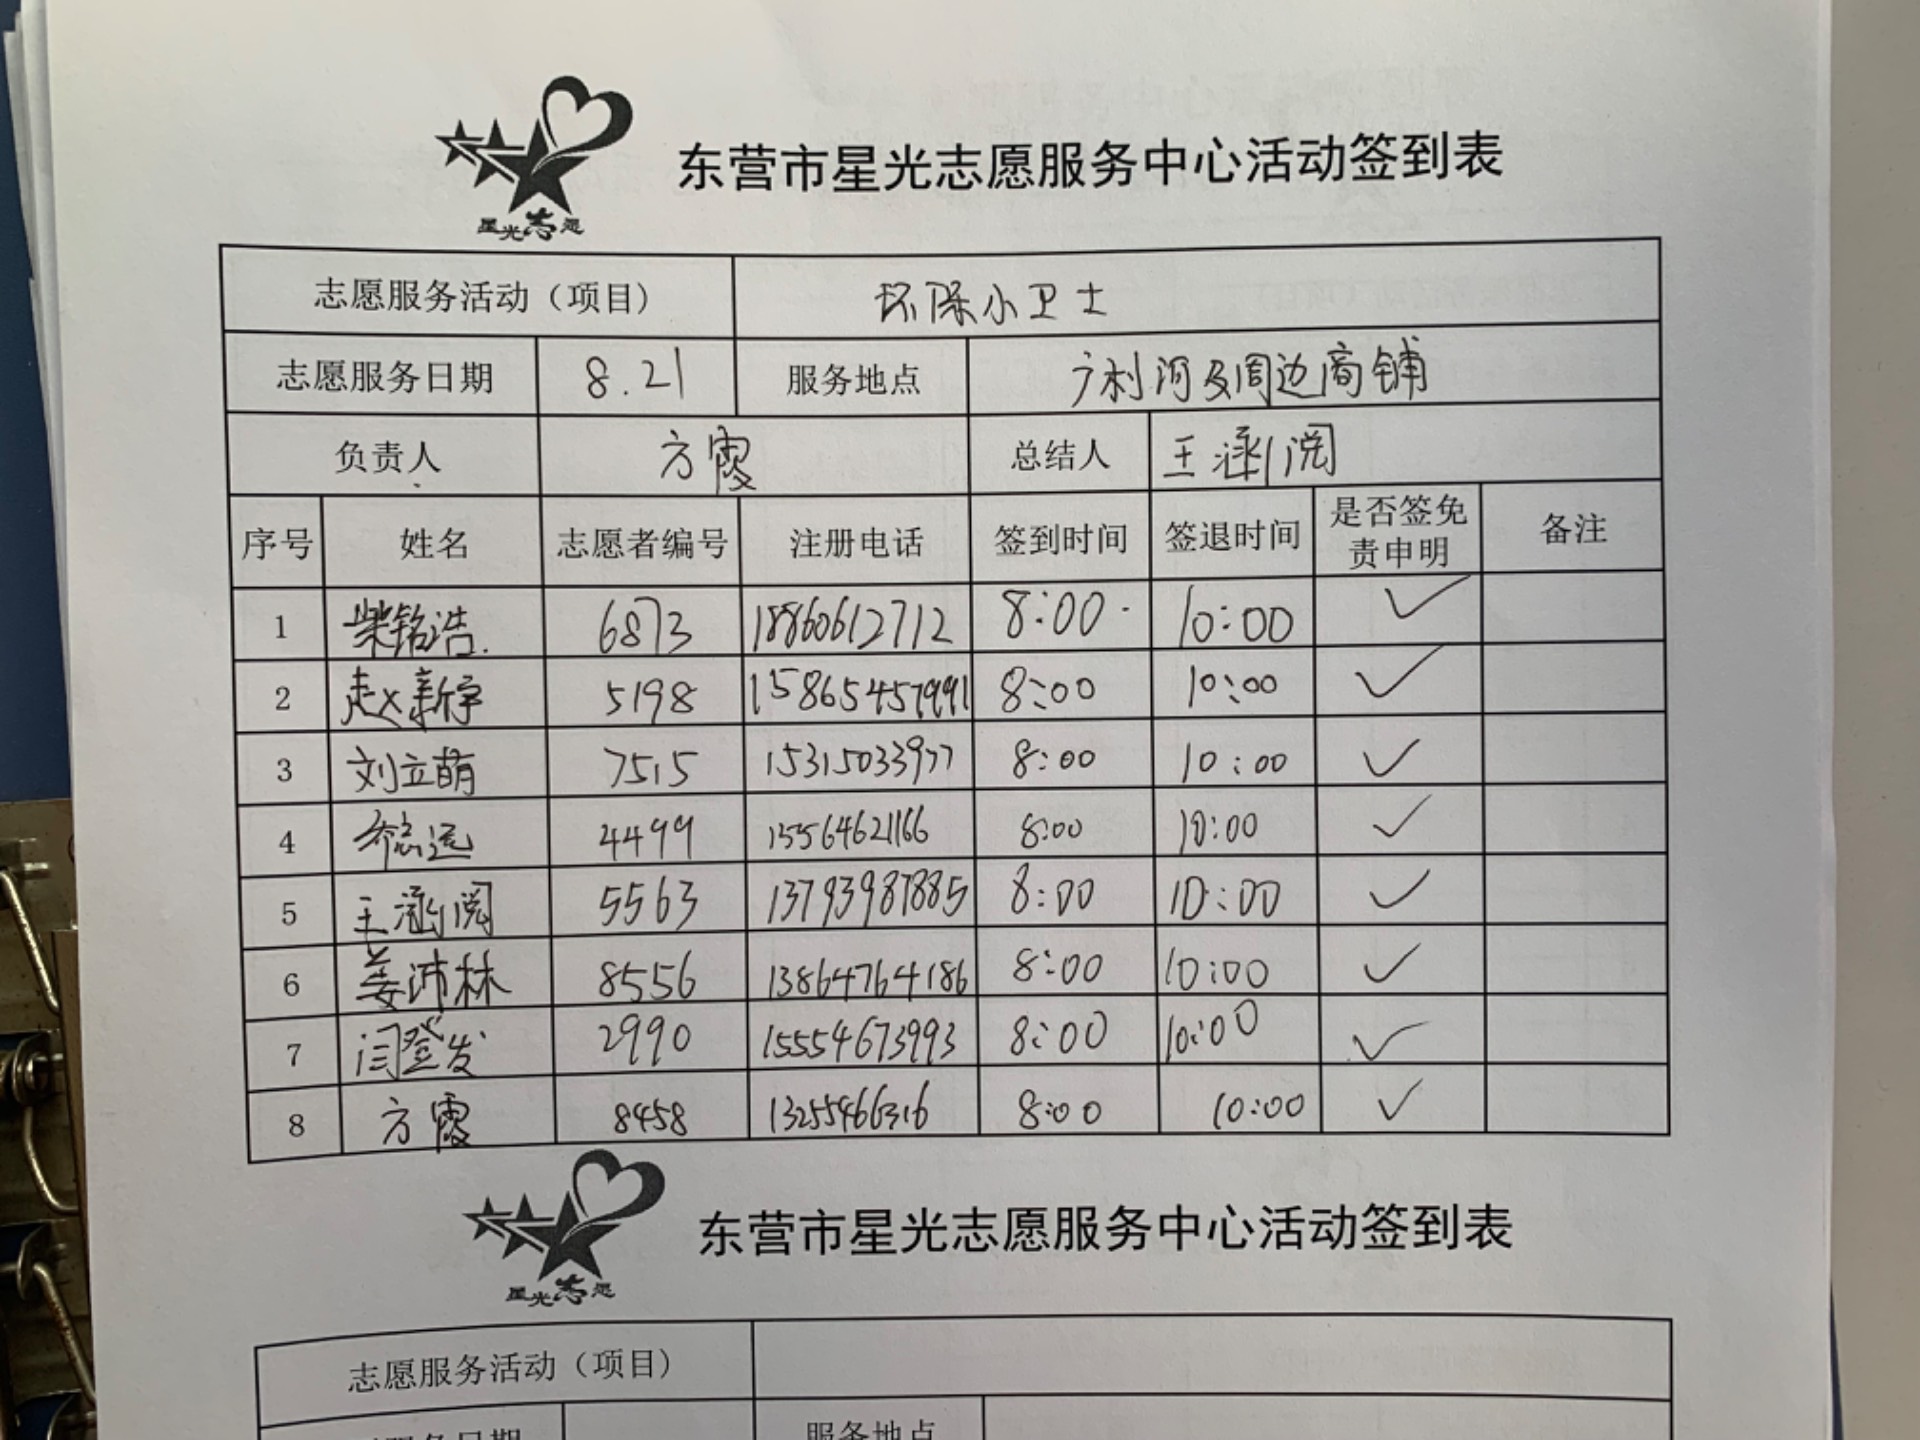 东营市星光志愿服务中心活动签到表
星光志愿
志愿服务活动（项目） 环保小卫士
志愿服务日期 8.21 服务地点 广利河及周边商铺
负责人 方霞 总结人 王涵阅
序号 姓名 志愿者编号 注册电话 签到时间 签退时间 是否签免责申明 备注
1 柴铭浩 6873 18860612712 8:00 10:00 ✓
2 赵新宇 5198 15865457991 8:00 10:00 ✓
3 刘立萌 7515 15315033977 8:00 10:00 ✓
4 乔志远 4499 15564621166 8:00 10:00 ✓
5 王涵阅 5563 13793987885 8:00 10:00 ✓
6 姜沛林 8556 13864764186 8:00 10:00 ✓
7 闫登发 2990 15554673993 8:00 10:00 ✓
8 方霞 8458 13255466316 8:00 10:00 ✓
东营市星光志愿服务中心活动签到表
星光志愿
志愿服务活动（项目）
志愿服务日期 服务地点